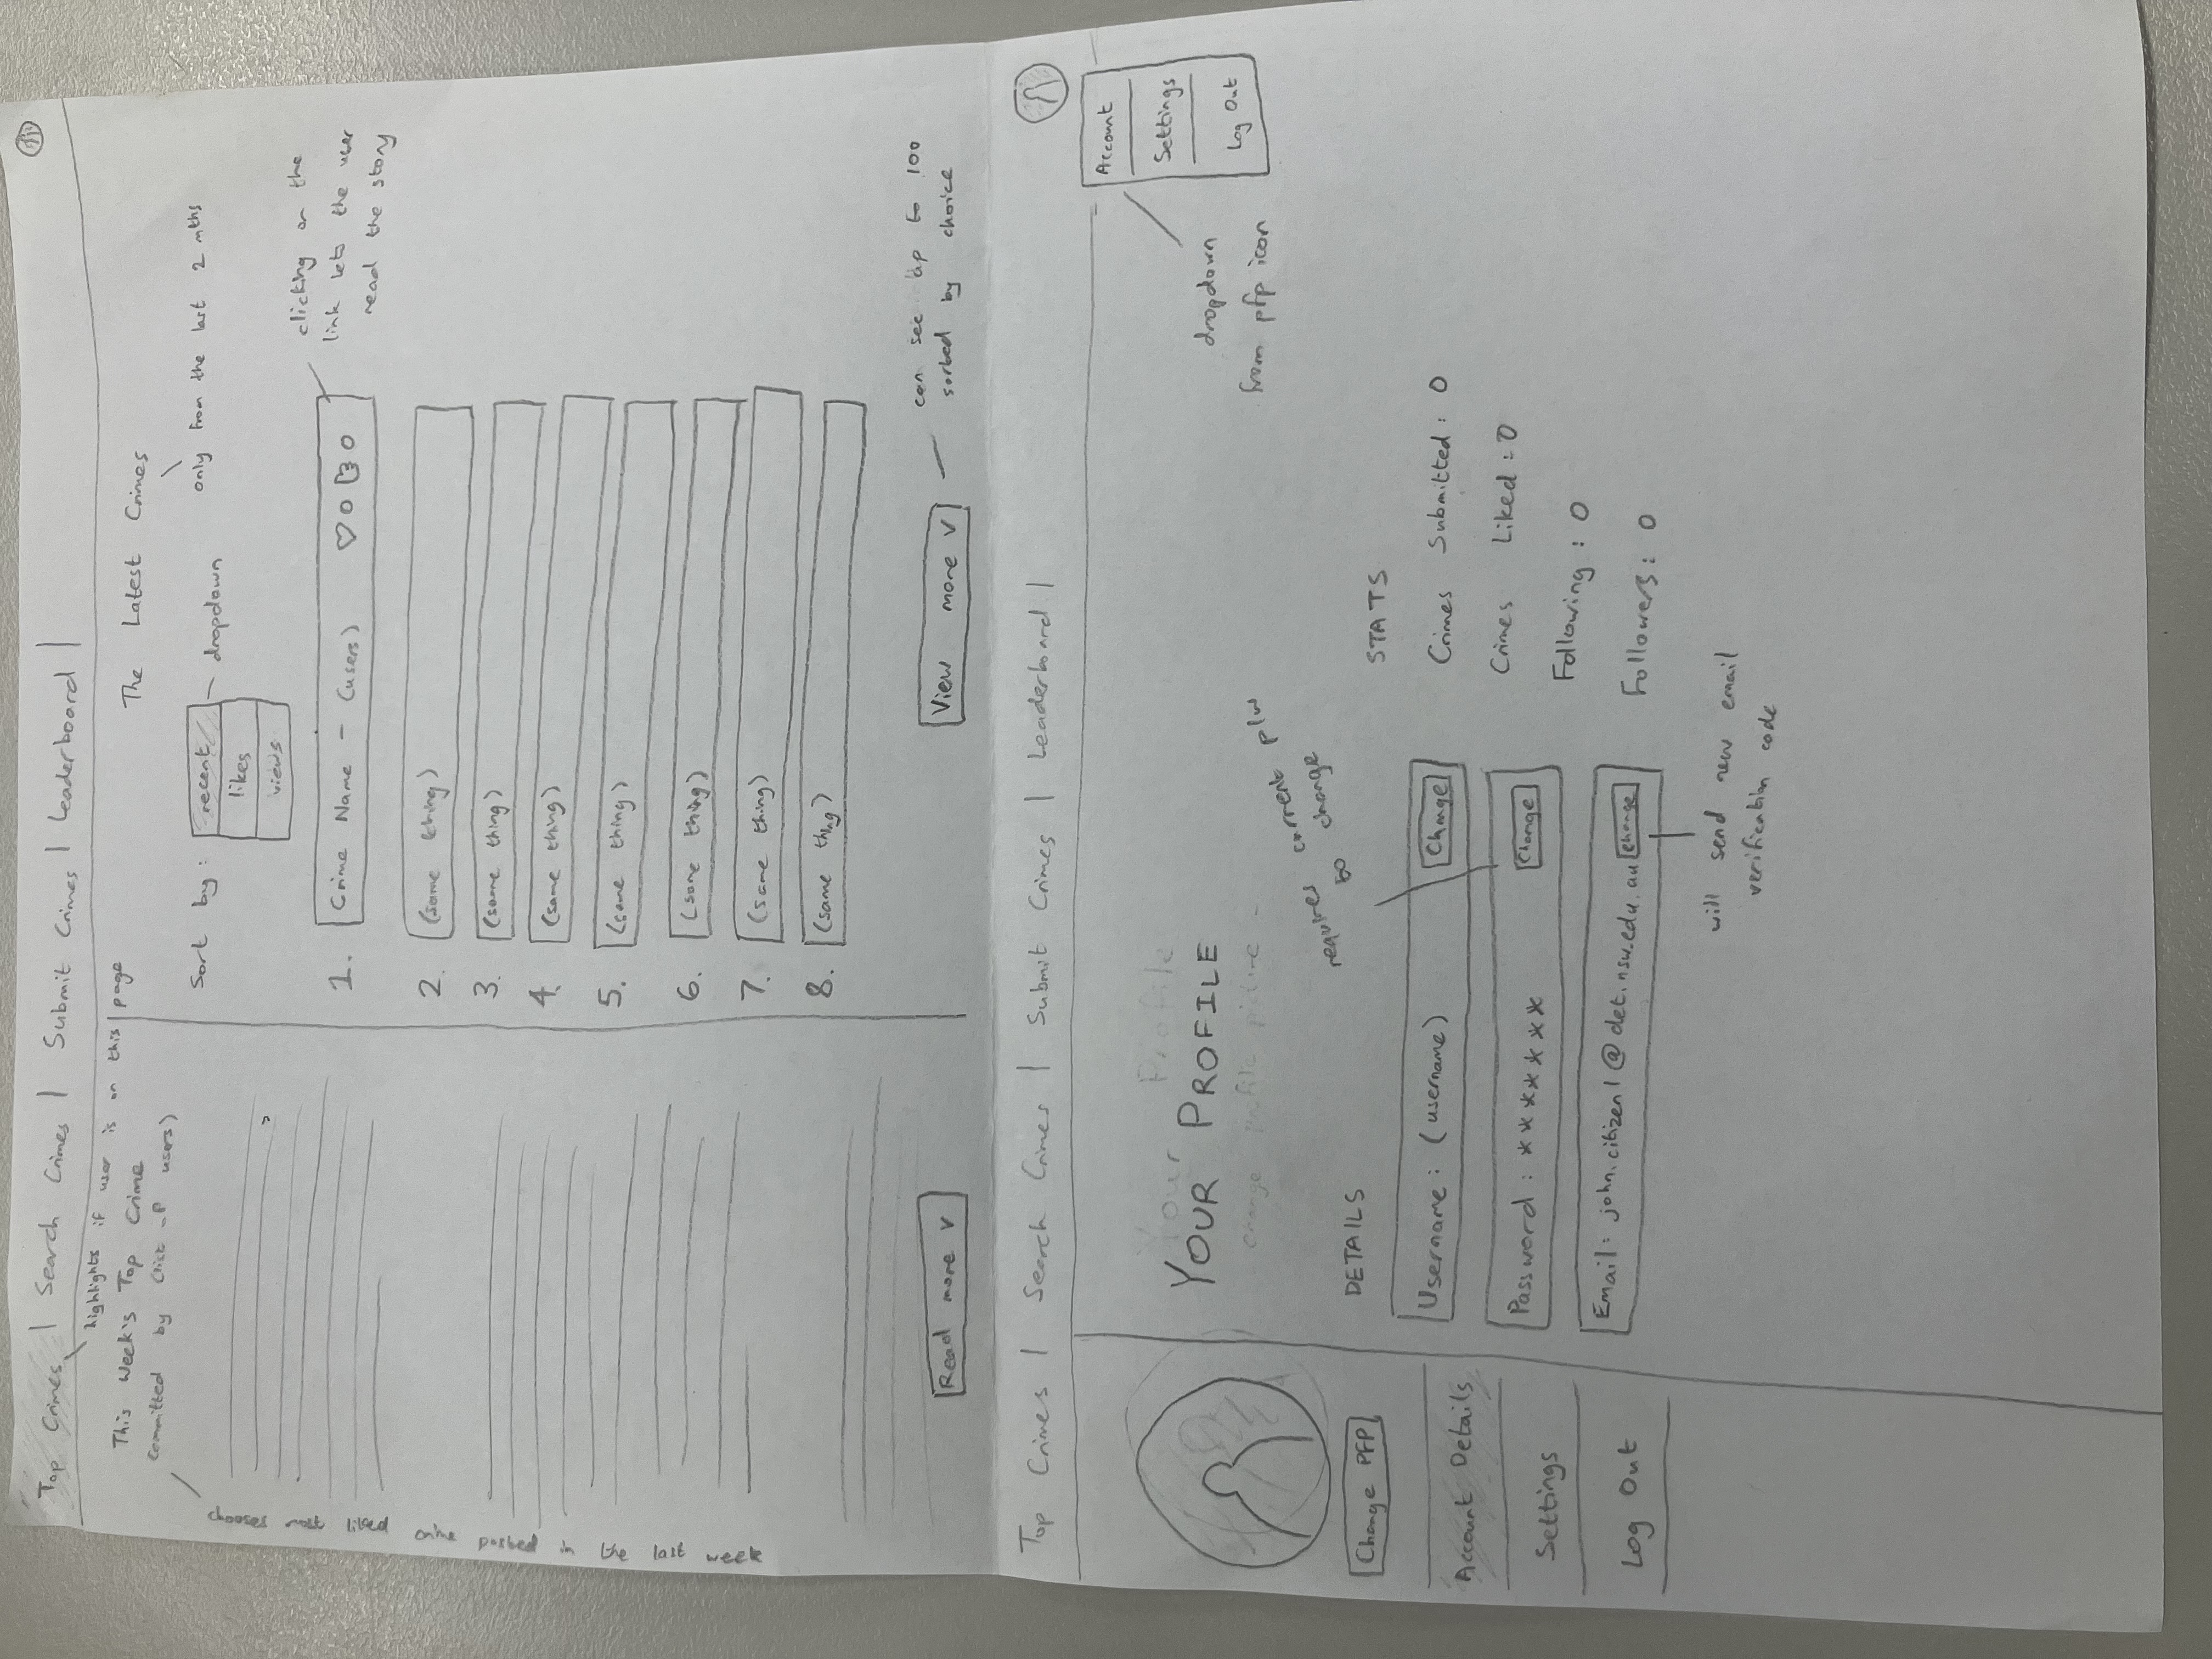 Top Crimes | Search Crimes | Submit Crimes | Leaderboard |
highlights if user is on this page
This Week's Top Crime
committed by (list of users)
chooses most liked online posted in the last week
Read more v
The Latest Crimes
only from the last 2 mths
Sort by:
recent
likes
views
dropdown
1. Crime Name - (users) ♡ 0 0
clicking on the
link lets the user
read the story
2. (same thing)
3. (same thing)
4. (same thing)
5. (same thing)
6. (same thing)
7. (same thing)
8. (same thing)
View more v
can see up to 100
sorted by choice
Top Crimes | Search Crimes | Submit Crimes | Leaderboard |
Account
Settings
Log Out
dropdown
from pfp icon
Change PFP
Account Details
Settings
Log Out
Your Profile
YOUR PROFILE
change profile picture -
requires current p/w
to change
DETAILS
Username: (username) Change
Password: ******* Change
Email: john.citizen1@det.nsw.edu.au change
will send new email
verification code
STATS
Crimes Submitted: 0
Crimes Liked: 0
Following: 0
Followers: 0